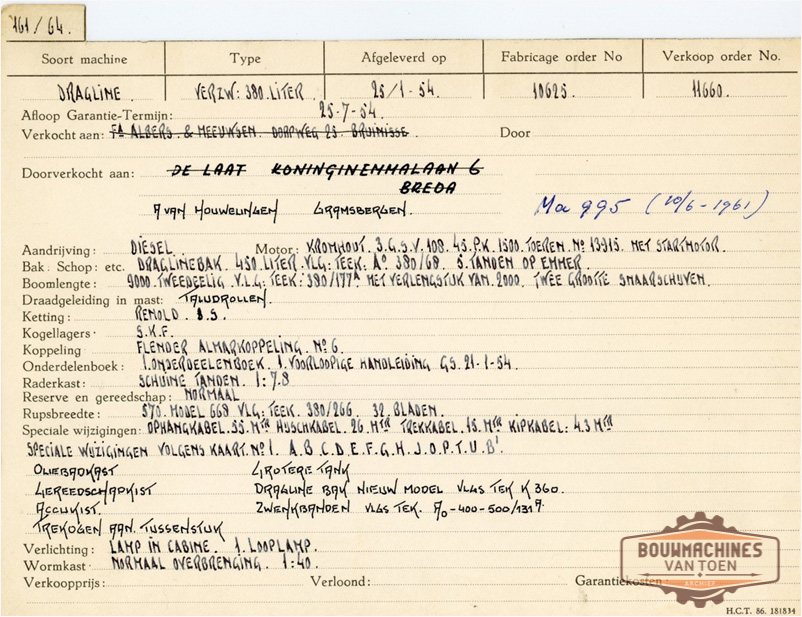 161/64.
Soort machine Type Afgeleverd op Fabricage order No Verkoop order No.
DRAGLINE. VERZW: 380 LITER 25/1-54. 10625. 11660.
Afloop Garantie-Termijn: 25-7-54.
Verkocht aan: FA ALBERS. & MEEUWSEN. DORPWEG 25. BRUINISSE. Door
Doorverkocht aan: DE LAAT KONINGINENMALAAN 6
BREDA
A VAN HOUWELINGEN GRAMSBERGEN. Ma 995 (10/6-1961)
Aandrijving: DIESEL Motor: KROMHOUT. 3.G.S.V. 108. 45.P.K. 1500.TOEREN. No 13915. MET STARTMOTOR.
Bak. Schop: etc. DRAGLINEBAK. 450.LITER.VLG:TEEK: Ao 380/68. 5.TANDEN OP EMMER.
Boomlengte: 9000.TWEEDEELIG. V.L.G: TEEK: 380/177A MET VERLENGSTUK VAN. 2000. TWEE GROOTE SMAARSCHIJVEN.
Draadgeleiding in mast: TALUDROLLEN.
Ketting: RENOLD. I.S.
Kogellagers S.K.F.
Koppeling FLENDER ALMARKOPPELING. No 6.
Onderdelenboek: 1.ONDERDEELENBOEK. 1.VOORLOOPIGE HANDLEIDING GS. 21-1-54.
Raderkast: SCHUINE TANDEN. 1:7.8
Reserve en gereedschap: NORMAAL
Rupsbreedte: 570.MODEL 668 VLG: TEEK. 380/266. 32.BLADEN.
Speciale wijzigingen: OPHANGKABEL.55.MTR HIJSCHKABEL. 26.MTR TREKKABEL. 15.MTR KIPKABEL: 4.3 MTR
SPECIALE WIJZIGINGEN VOLGENS KAART.No 1. A.B.C.D.E.F.G.H.J.O.P.T.U.B'
OLIEBADKAST GROTERE TANK
GEREEDSCHAPKIST DRAGLINE BAK NIEUW MODEL VLGS TEK K 360.
ACCUKIST. ZWENKBANDEN VLGS TEK. A0-400-500/131A
TREKOGEN AAN. TUSSENSTUK
Verlichting: LAMP IN CABINE. 1.LOOPLAMP.
Wormkast NORMAAL OVERBRENGING. 1:40.
Verkoopprijs: Verloond: Garantiekosten:
BOUWMACHINES
VAN TOEN
ARCHIEF
H.C.T. 86. 181834